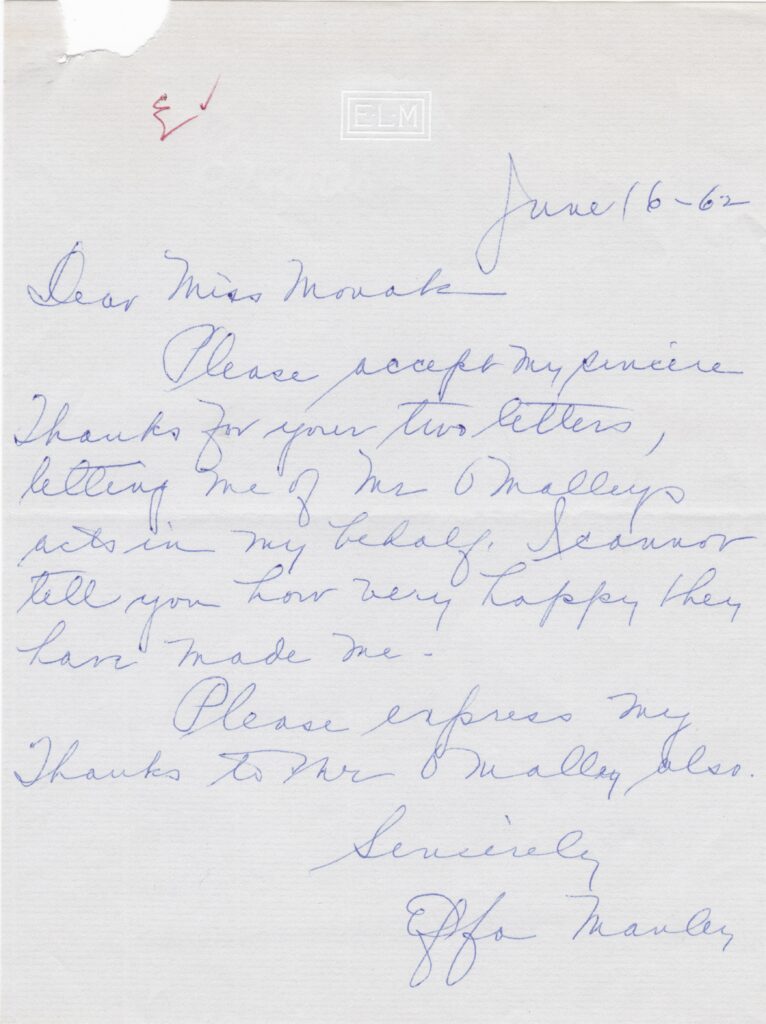 E-L-M
June 16-62
Dear Miss Novak
Please accept my sincere
Thanks for your two letters,
letting me of Mr O'Malleys
acts in my behalf. I cannot
tell you how very happy they
have made me -
Please express my
Thanks to Mr O'Malley also.
Sincerely
Effa Manley